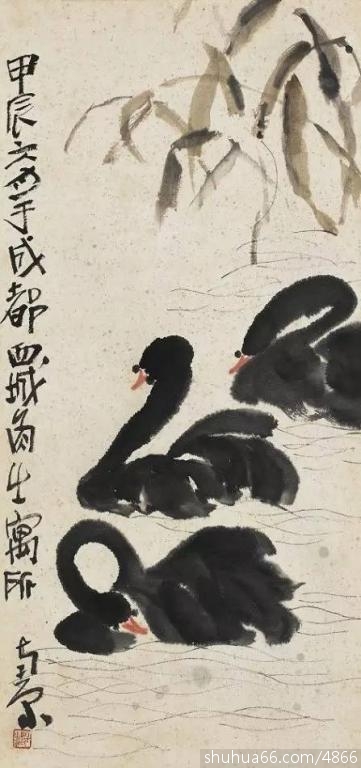 甲辰于成都西城寓所
南原
shuhua66.com/4866